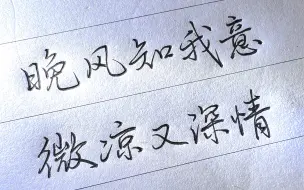 晚风知我意
微凉又深情